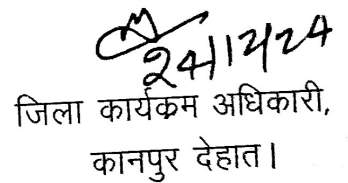 24/12/24
जिला कार्यक्रम अधिकारी,
कानपुर देहात।